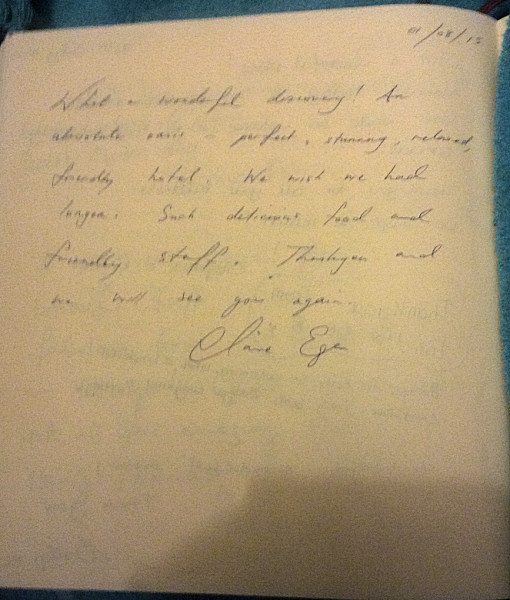 01/08/15
What a wonderful discovery! An
absolute oasis - perfect, stunning, relaxed,
friendly hotel. We wish we had
longer. Such delicious food and
friendly staff. Thankyou and
we will see you again.
Claire Egan